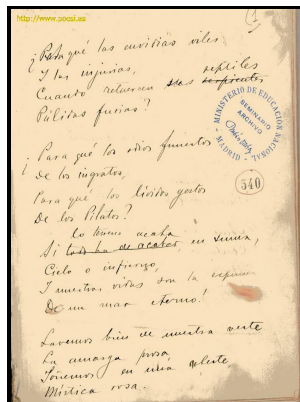 http://www.pocsi.es
¿Para qué las envidias viles
Y las injurias,
reptiles
Cuando retuercen sus serpientes
Pálidas furias?
¿Para qué los odios funestos
De los ingratos,
Para qué los lívidos gestos
De los Pilatos?
lo terreno acaba
Si todo ha de acabar, en suma,
Cielo o infierno,
Y nuestras vidas son la espuma
De un mar eterno!
Lavemos bien de nuestra veste
La amarga prosa,
Soñemos en una celeste
Mística rosa.
MINISTERIO DE EDUCACION NACIONAL
SEMINARIO
ARCHIVO
MADRID
340